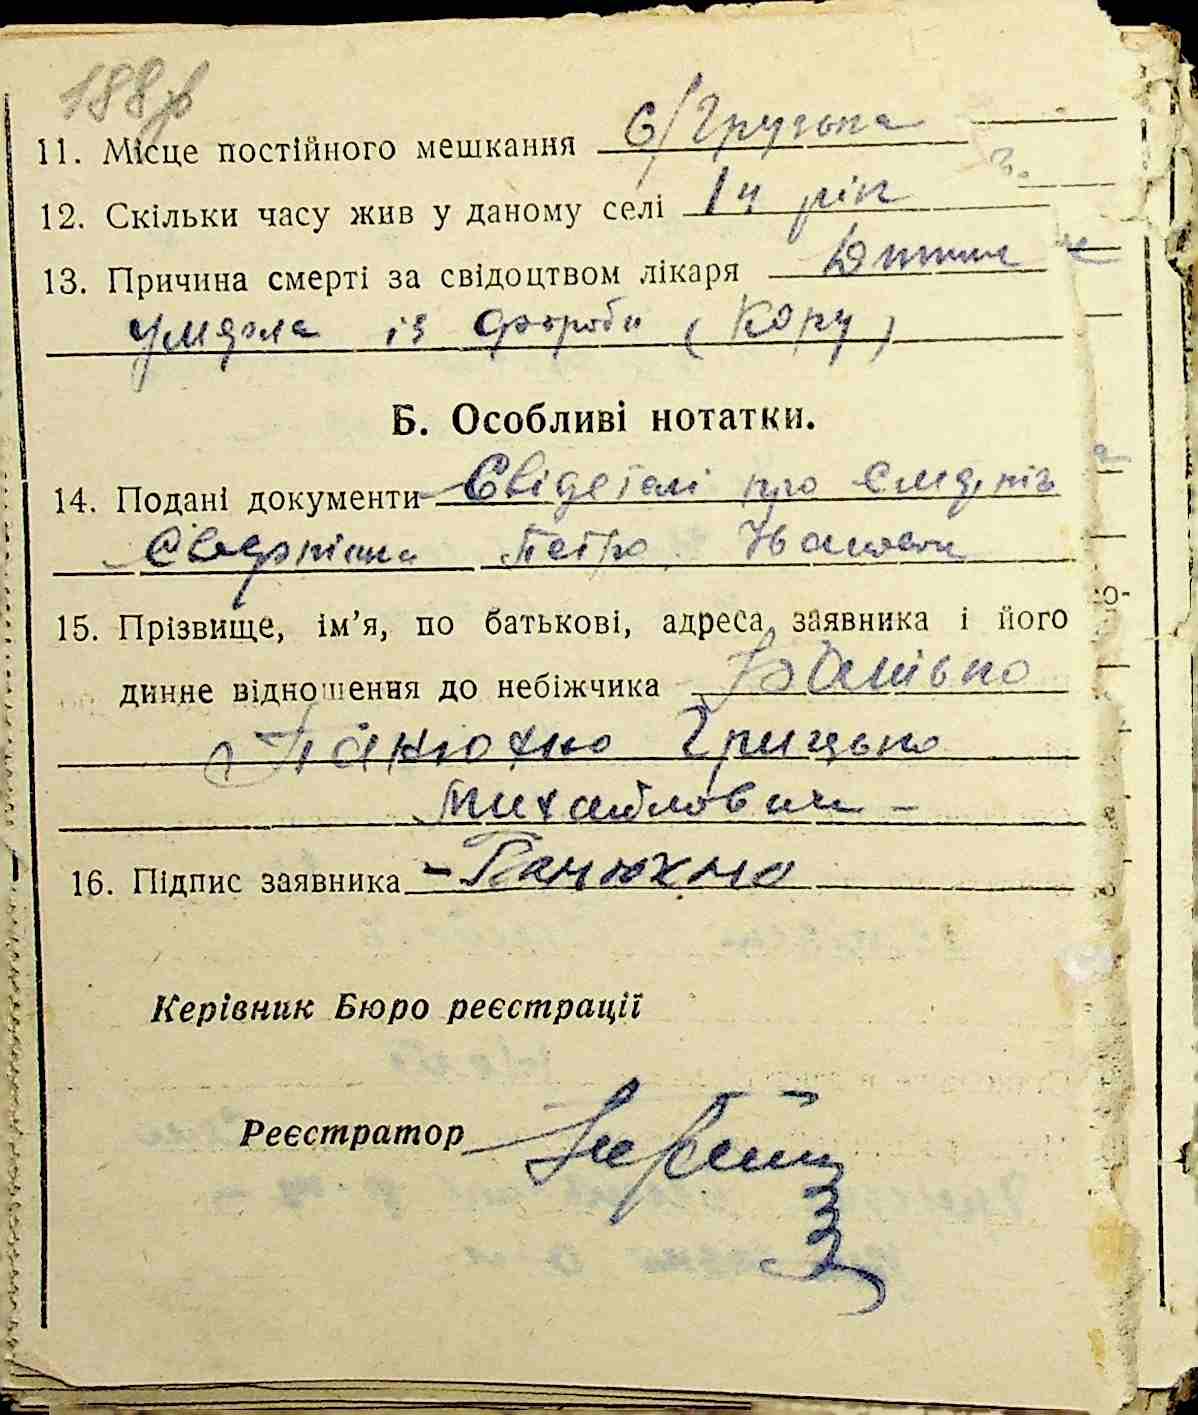 188
11. Місце постійного мешкання с/Грузька
12. Скільки часу жив у даному селі 14 рік
13. Причина смерті за свідоцтвом лікаря
умерла із хороби (Кору)
Б. Особливі нотатки.
14. Подані документи Свідетелі про смерть
Петро Іванович
15. Прізвище, ім’я, по батькові, адреса заявника і його
динне відношення до небіжчика Батько
Панюхно Грицько
Михайлович -
16. Підпис заявника - Панюхно
Керівник Бюро реєстрації
Реєстратор